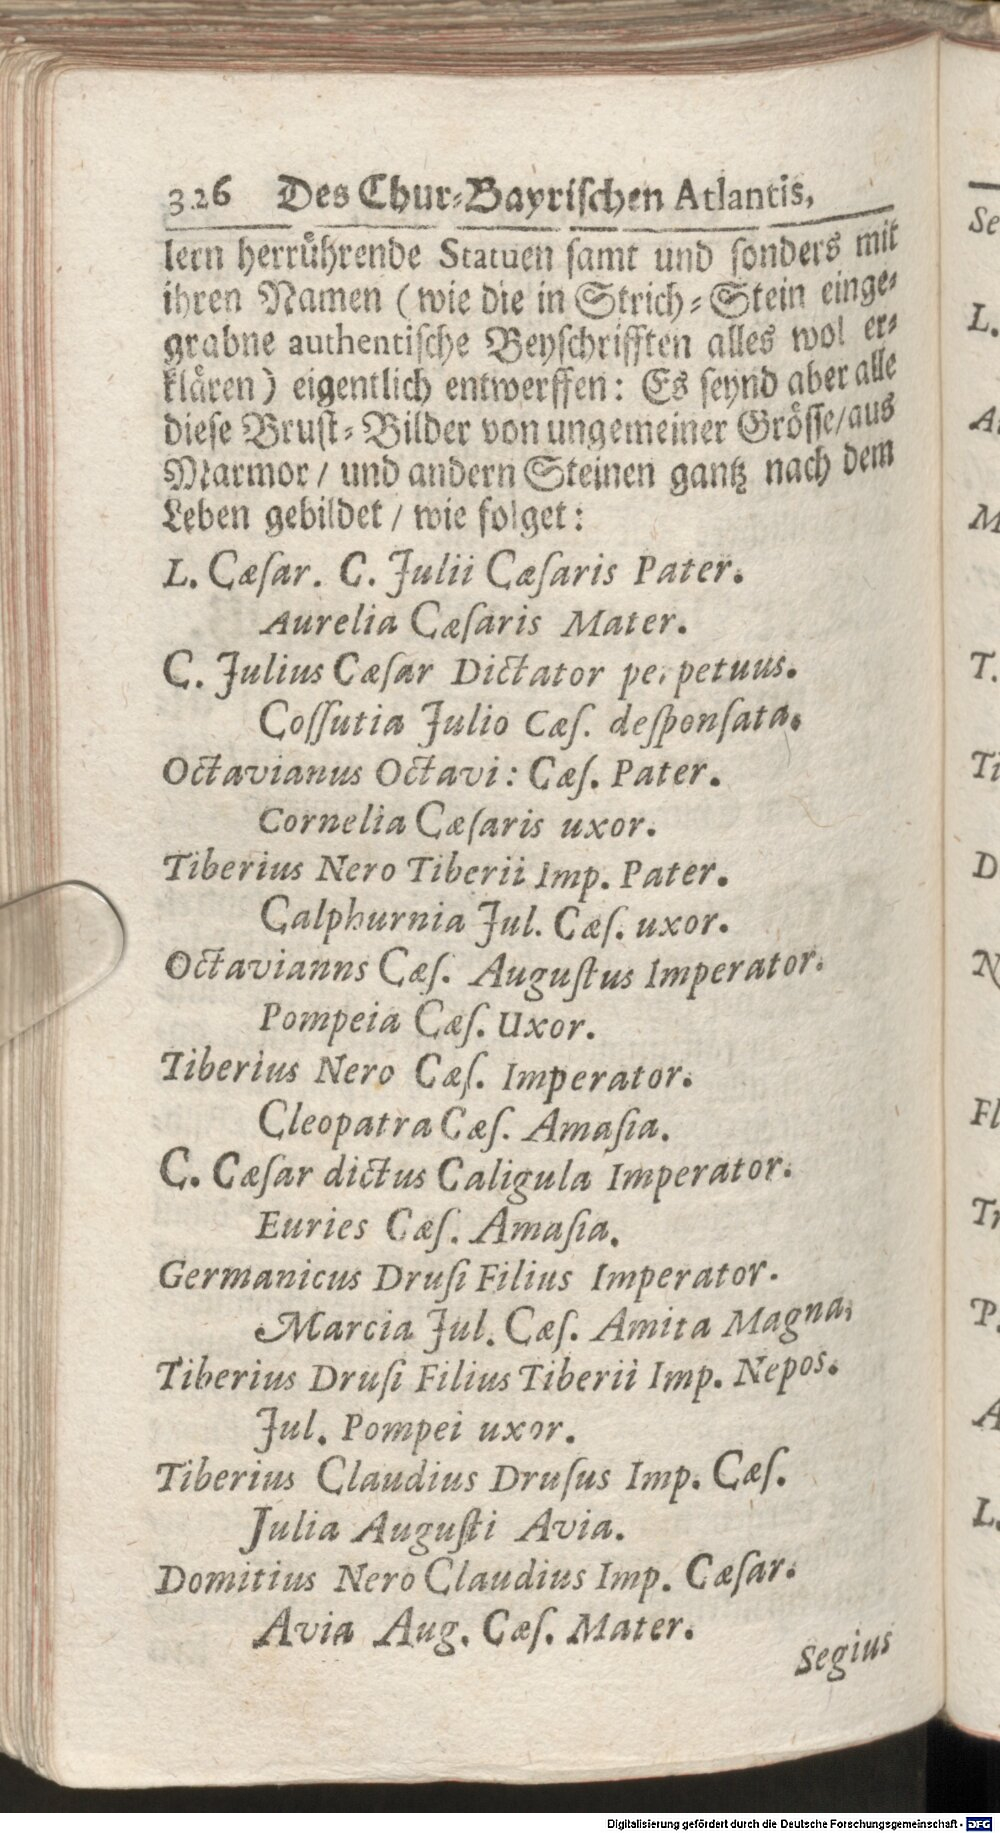 326 Des Chur-Bayrischen Atlantis,
lern herrührende Statuen samt und sonders mit
ihren Namen (wie die in Strich-Stein einge-
grabne authentische Beyschrifften alles wol er-
klären) eigentlich entwerffen: Es seynd aber alle
diese Brust-Bilder von ungemeiner Grösse/aus
Marmor / und andern Steinen gantz nach dem
Leben gebildet / wie folget:
L. Cæſar. C. Julii Cæſaris Pater.
Aurelia Cæſaris Mater.
C. Julius Cæſar Dictator perpetuus.
Coſſutia Julio Cæſ. deſponſata.
Octavianus Octavi: Cæſ. Pater.
Cornelia Cæſaris uxor.
Tiberius Nero Tiberii Imp. Pater.
Calphurnia Jul. Cæſ. uxor.
Octavianns Cæſ. Auguſtus Imperator.
Pompeia Cæſ. Uxor.
Tiberius Nero Cæſ. Imperator.
Cleopatra Cæſ. Amaſia.
C. Cæſar dictus Caligula Imperator.
Euries Cæſ. Amaſia.
Germanicus Druſi Filius Imperator.
Marcia Jul. Cæſ. Amita Magna.
Tiberius Druſi Filius Tiberii Imp. Nepos.
Jul. Pompei uxor.
Tiberius Claudius Druſus Imp. Cæſ.
Julia Auguſti Avia.
Domitius Nero Claudius Imp. Cæſar.
Avia Aug. Cæſ. Mater.
Segius
Se
L.
M
T.
Ti
D
Fl
Tr
P.
A
L.
Digitalisierung gefördert durch die Deutsche Forschungsgemeinschaft - DFG